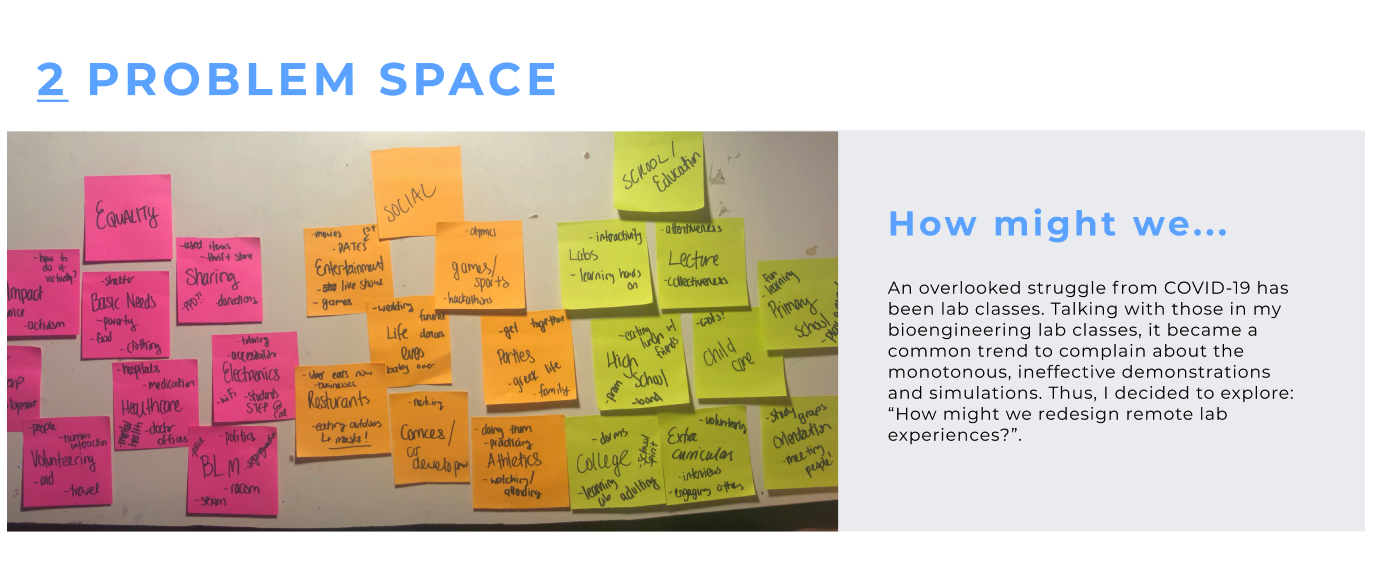 2 PROBLEM SPACE
EQUALITY
- how to
do it
virtually?
Impact
- activism
- shelter
Basic Needs
- poverty
- food
- clothing
- used items
- thrift store
Sharing
donations
- hospitals
- medication
Healthcare
- mental
health
- doctor
offices
Electronics
- wifi
- students
STEP @
Cal
- people
- human
interaction
Volunteering
- aid
- travel
- politics
BLM
- racism
- sexism
SOCIAL
- movies
- DATES
Entertainment
- live shows
- games
- olympics
games/
sports
- hackathons
- wedding
funeral
Life
- get together
Parties
- greek life
- family
- uber eats now
- businesses
Resturants
- eating outdoors
masks!
- doing them
- practicing
Athletics
- watching/
attending
SCHOOL/
Education
- interactivity
Labs
- learning hands
on
- attentiveness
Lecture
- collectiveness
- fun
- learning
Primary
school
- eating
lunch w/
friends
High
School
- prom
- band
child
care
- dorms
College
- school
spirit
- learning
adulting
- volunteering
Extra
curriculars
- interviews
- engaging others
- study groups
Orientation
- meeting
people
How might we...
An overlooked struggle from COVID-19 has
been lab classes. Talking with those in my
bioengineering lab classes, it became a
common trend to complain about the
monotonous, ineffective demonstrations
and simulations. Thus, I decided to explore:
“How might we redesign remote lab
experiences?”.